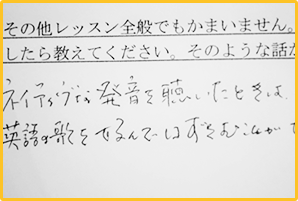 その他レッスン全般でもかまいません。
したら教えてください。そのような話が
ネイティヴな発音を聴いたときは、
英語の歌を